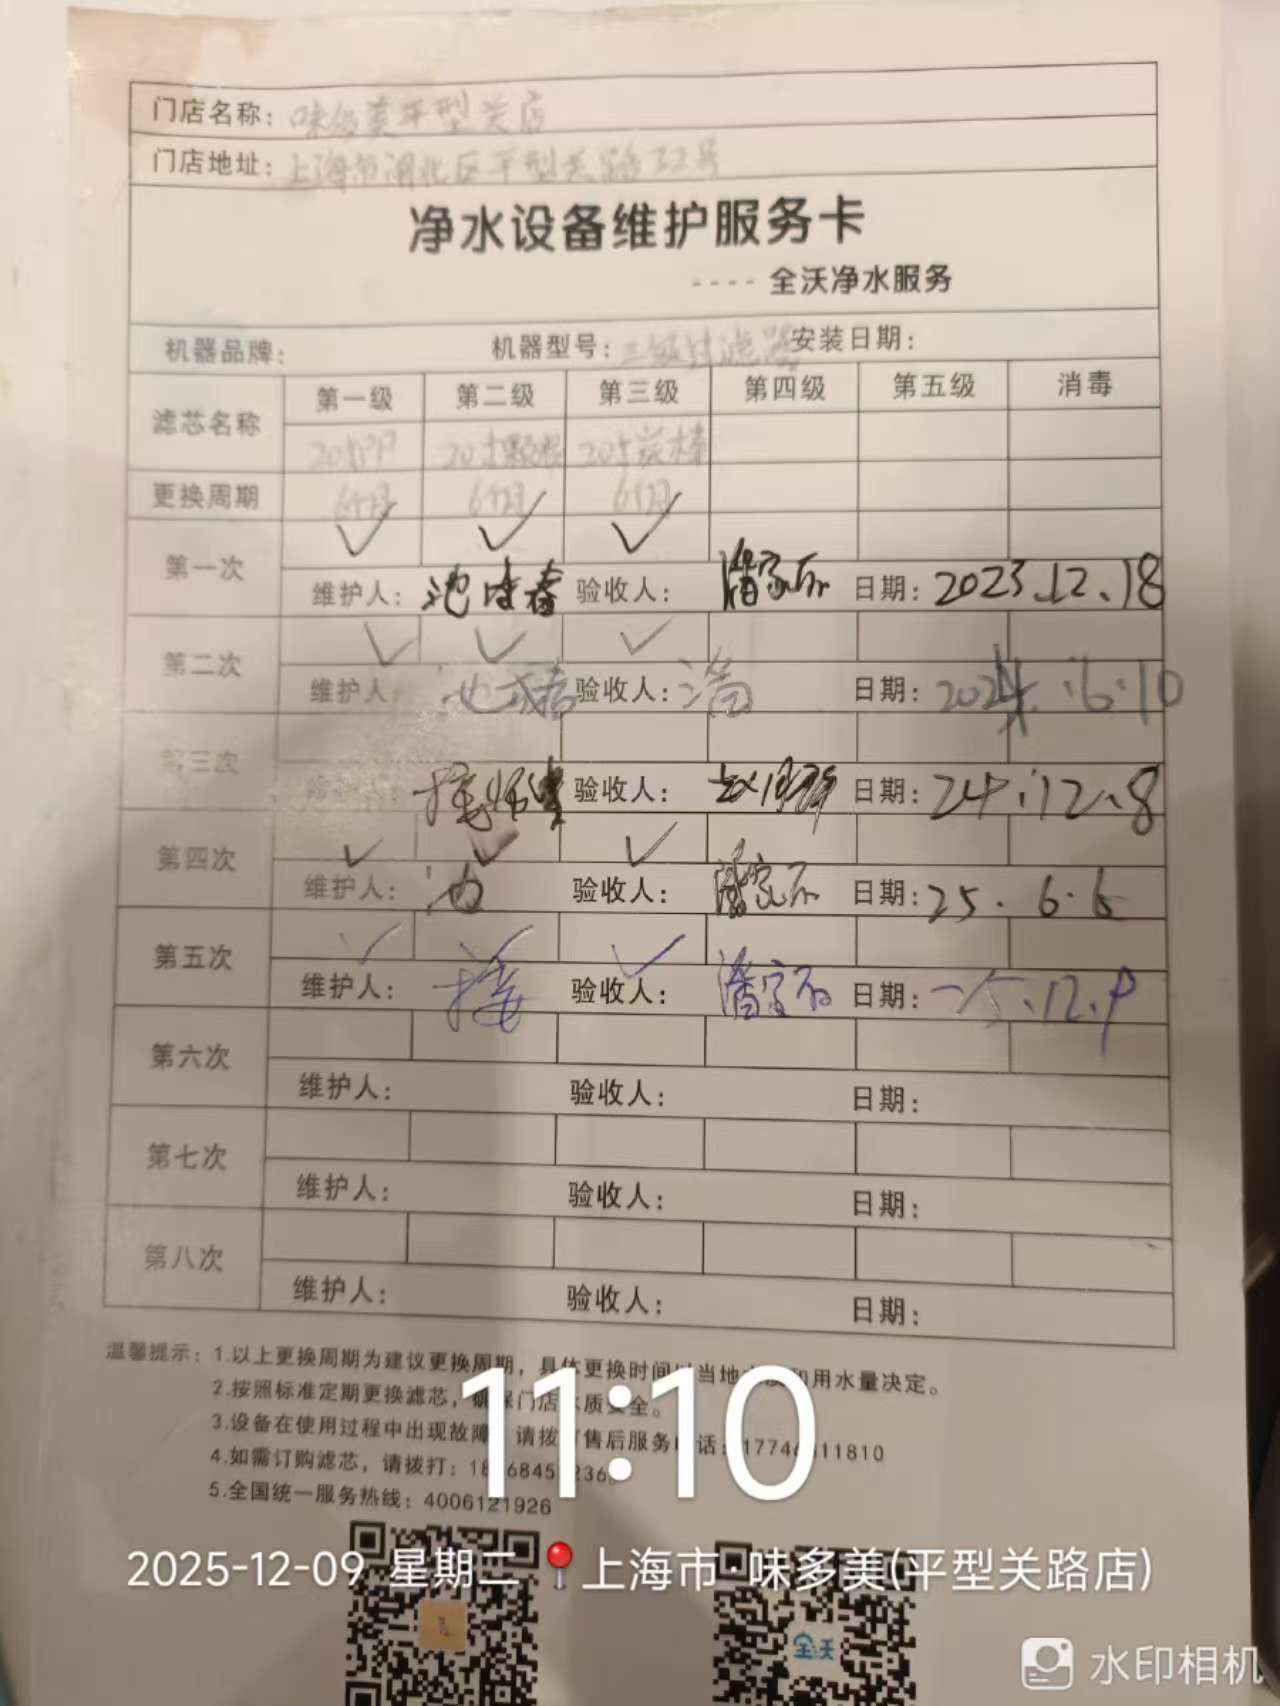 门店名称：味多美平型关店
门店地址：上海市闸北区平型关路32号
净水设备维护服务卡
---- 全沃净水服务
机器品牌： 机器型号：三级过滤器 安装日期：
滤芯名称 第一级 第二级 第三级 第四级 第五级 消毒
20寸PP 20寸颗粒 20寸炭棒
更换周期 6个月 6个月 6个月
第一次 ✓ ✓ ✓
维护人： 验收人：潘家 日期：2023.12.18
第二次 ✓ ✓ ✓
维护人： 验收人：潘 日期：2024.6.10
第三次
验收人： 日期：24.12.8
第四次 ✓ ✓ ✓
维护人：池 验收人：潘家 日期：25.6.6
第五次 ✓ ✓ ✓
维护人： 验收人：潘家 日期：25.12.9
第六次
维护人： 验收人： 日期：
第七次
维护人： 验收人： 日期：
第八次
维护人： 验收人： 日期：
温馨提示：1.以上更换周期为建议更换周期，具体更换时间以当地水质和用水量决定。
2.按照标准定期更换滤芯，确保门店水质安全。
3.设备在使用过程中出现故障，请拨打售后服务电话：1774 11810
4.如需订购滤芯，请拨打：
5.全国统一服务热线：4006121926
11:10
2025-12-09 星期二 上海市·味多美(平型关路店)
全沃
水印相机